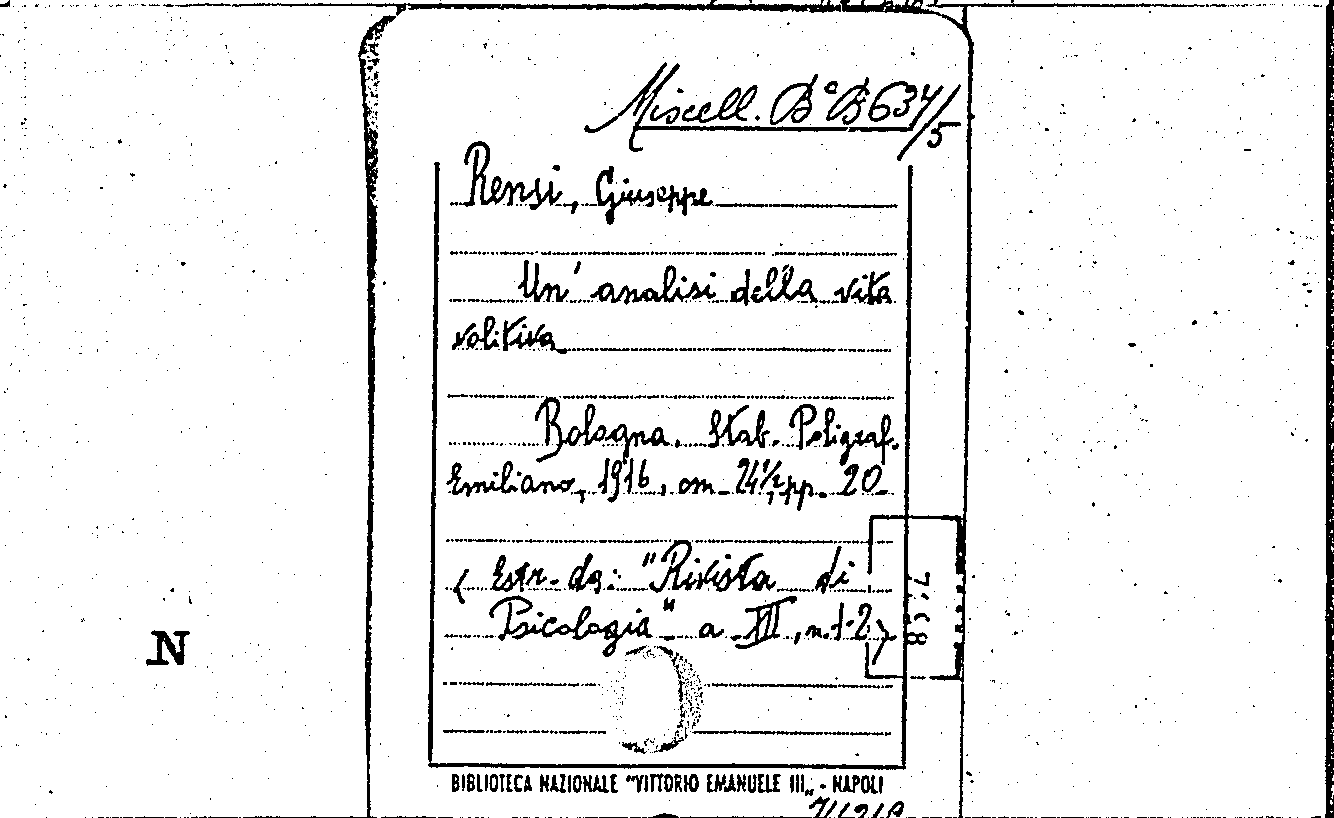 Miscell. B° B 634/5
Rensi, Giuseppe
Un' analisi della vita
volitiva
Bologna. Stab. Poligraf.
Emiliano, 1916, cm. 24½, pp. 20
(Estr. da: "Rivista di
Psicologia" a. XII, n. 1-2)
N
BIBLIOTECA NAZIONALE "VITTORIO EMANUELE III„ - NAPOLI